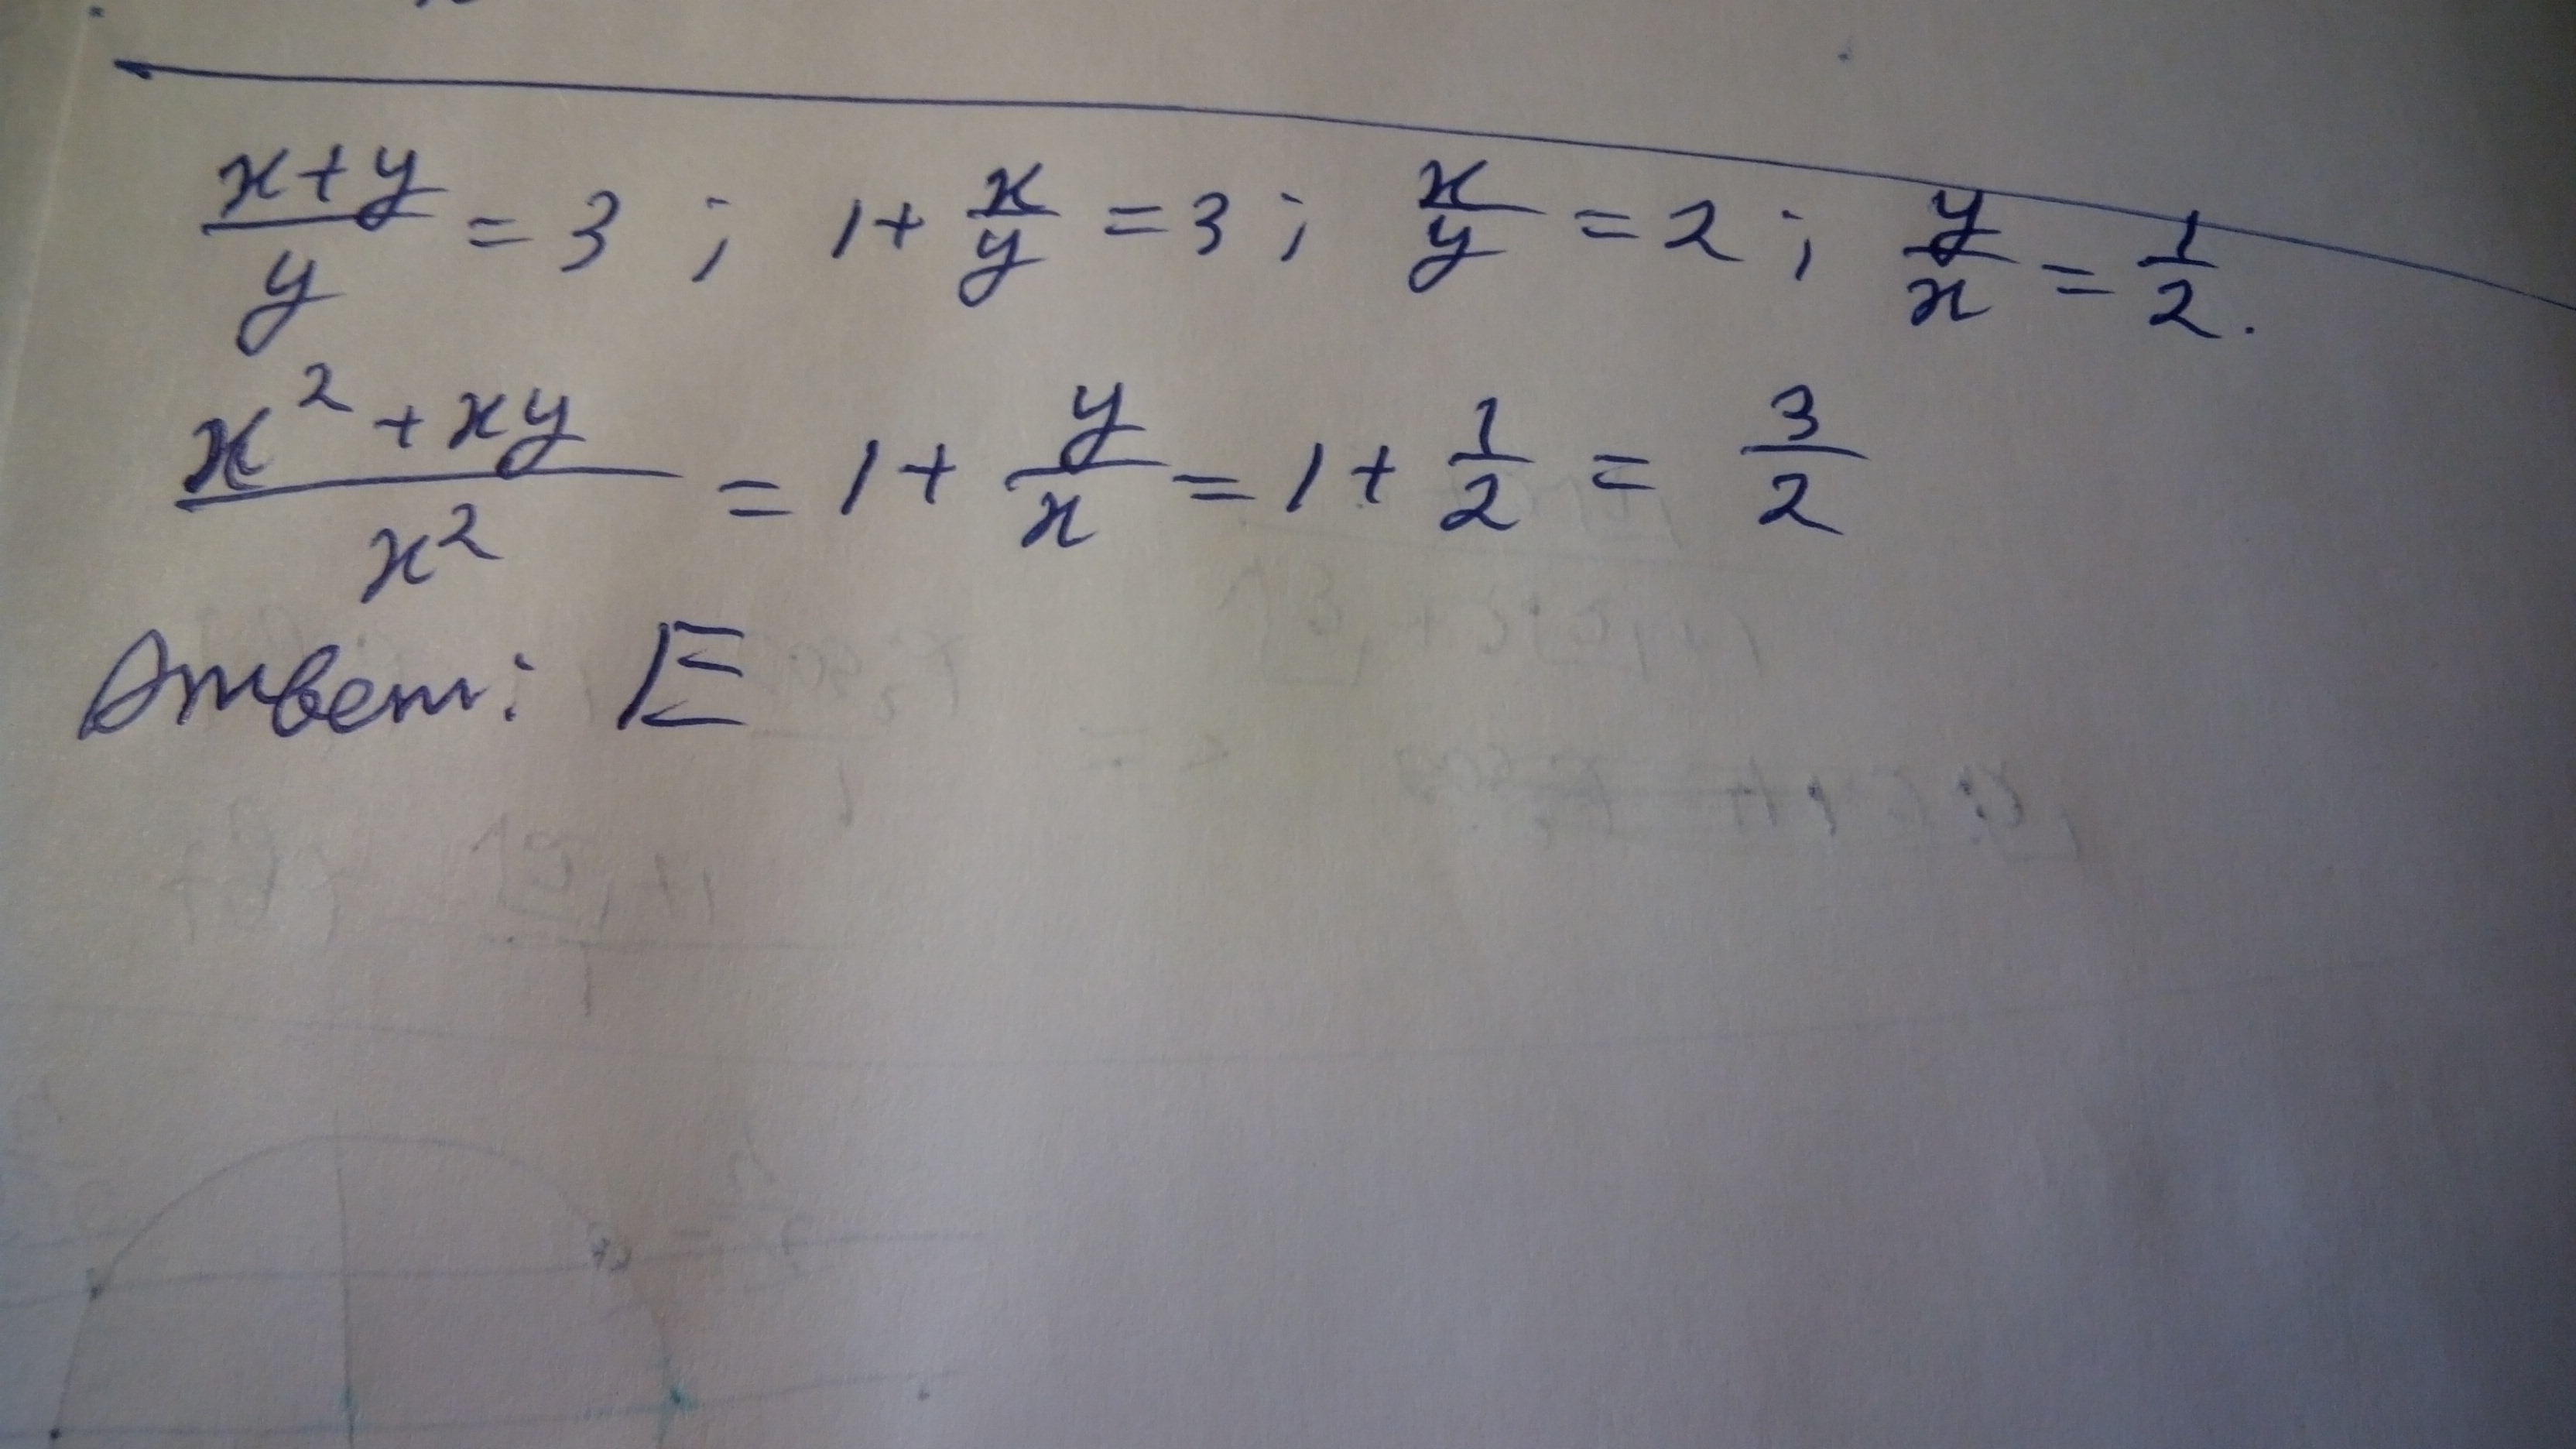 x+y/y = 3 ; 1+ x/y = 3 ; x/y = 2 ; y/x = 1/2.
x²+xy/x² = 1+ y/x = 1+ 1/2 = 3/2
Ответ: E